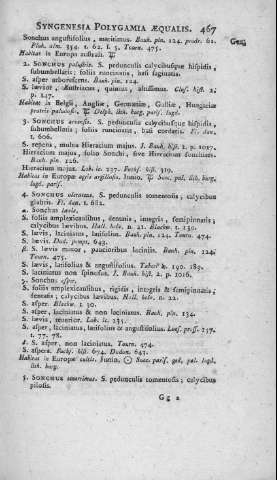 SYNGENESIA POLYGAMIA ÆQUALIS. 467
Sonchus angustifolius, maritimus. Bauh. pin. 124. prodr. 61.
Pluk. alm. 354. t. 62. f. 5. Tourn. 475.
Habitat in Europa australi.
Gen.
2. SONCHUS palustris. S. pedunculis calycibusque hispidis,
subumbellatis; foliis runcinatis, basi sagittatis.
S. asper arborescens. Bauh. pin. 124.
S. lævior, Austriacus, quintus, altissimus. Clus. hist. 2.
p. 147.
Habitat in Belgii, Angliæ, Germaniæ, Galliæ, Hungariæ
pratis paludosis. Delph. lith. burg. paris. lugd.
3. SONCHUS arvensis. S. pedunculis calycibusque hispidis,
subumbellatis; foliis runcinatis, basi cordatis. Fl. dan.
t. 606.
S. repens, multis Hieracium majus. J. Bauh. hist. 2. p. 1017.
Hieracium majus, folio Sonchi, sive Hieracium sonchites.
Bauh. pin. 126.
Hieracium majus. Lob. ic. 237. Fuchs. hist. 319.
Habitat in Europæ agris argillosis. Junio. Suec. pal. lith. burg.
lugd. paris.
4. SONCHUS oleraceus. S. pedunculis tomentosis, calycibus
glabris. Fl. dan. t. 682.
α. Sonchus lævis.
S. foliis amplexicaulibus, dentatis, integris, semipinnatis;
calycibus lævibus. Hall. helv. n. 21. Blackw. t. 130.
S. lævis, laciniatus, latifolius. Bauh. pin. 124. Tourn. 474.
S. lævis. Dod. pempt. 643.
β. S. lævis minor, paucioribus laciniis. Bauh. pin. 124.
Tourn. 475.
S. lævis, latifolius & angustifolius. Tabern. ic. 190. 189.
S. laciniatus non spinosus. J. Bauh. hist. 2. p. 1016.
γ. Sonchus asper.
S. foliis amplexicaulibus, rigidis, integris & semipinnatis,
dentatis; calycibus lævibus. Hall. helv. n. 22.
S. asper. Blackw. t. 30.
S. asper, laciniatus & non laciniatus. Bauh. pin. 124.
S. lævis, tenerior. Lob. ic. 235.
S. asper, laciniatus, latifolius & angustifolius. Loes. pruss. 257.
t. 77. 78.
δ. S. asper, non laciniatus. Tourn. 474.
S. aspera. Fuchs. hist. 674. Dodon. 643.
Habitat in Europæ cultis. Junio. Suec. paris. ged. pal. lugd.
lith. burg.
5. SONCHUS tenerrimus. S. pedunculis tomentosis; calycibus
pilosis.
G g 2